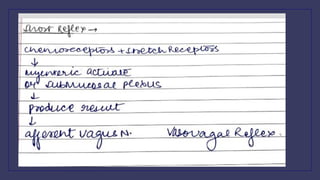 Short Reflex →
chemoreceptors + stretch receptors
↓
myenteric activate
or submucosal plexus
↓
produce result
↓
afferent vagus N. Vasovagal Reflex.